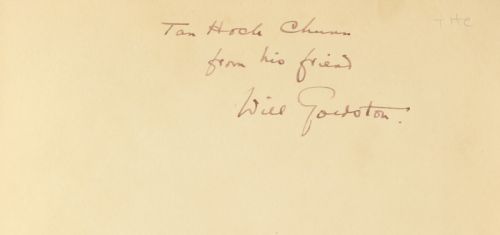 Tan Hock Chuan
from his friend
Will Goldston.
THC